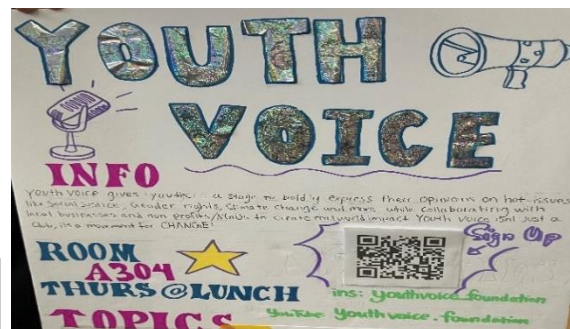 YOUTH
VOICE
INFO
Youth Voice gives youths a stage to boldly express their opinions on hot issues
like Social Justice, Gender rights, Climate Change and more while collaborating with
local businesses and non profits/ to create real world impact Youth Voice isnt just a
Club, its a movement for CHANGE!
Sign Up
ROOM
A304
THURS@LUNCH
ins: youthvoice.foundation
YouTube Youthvoice.foundation
TOPICS